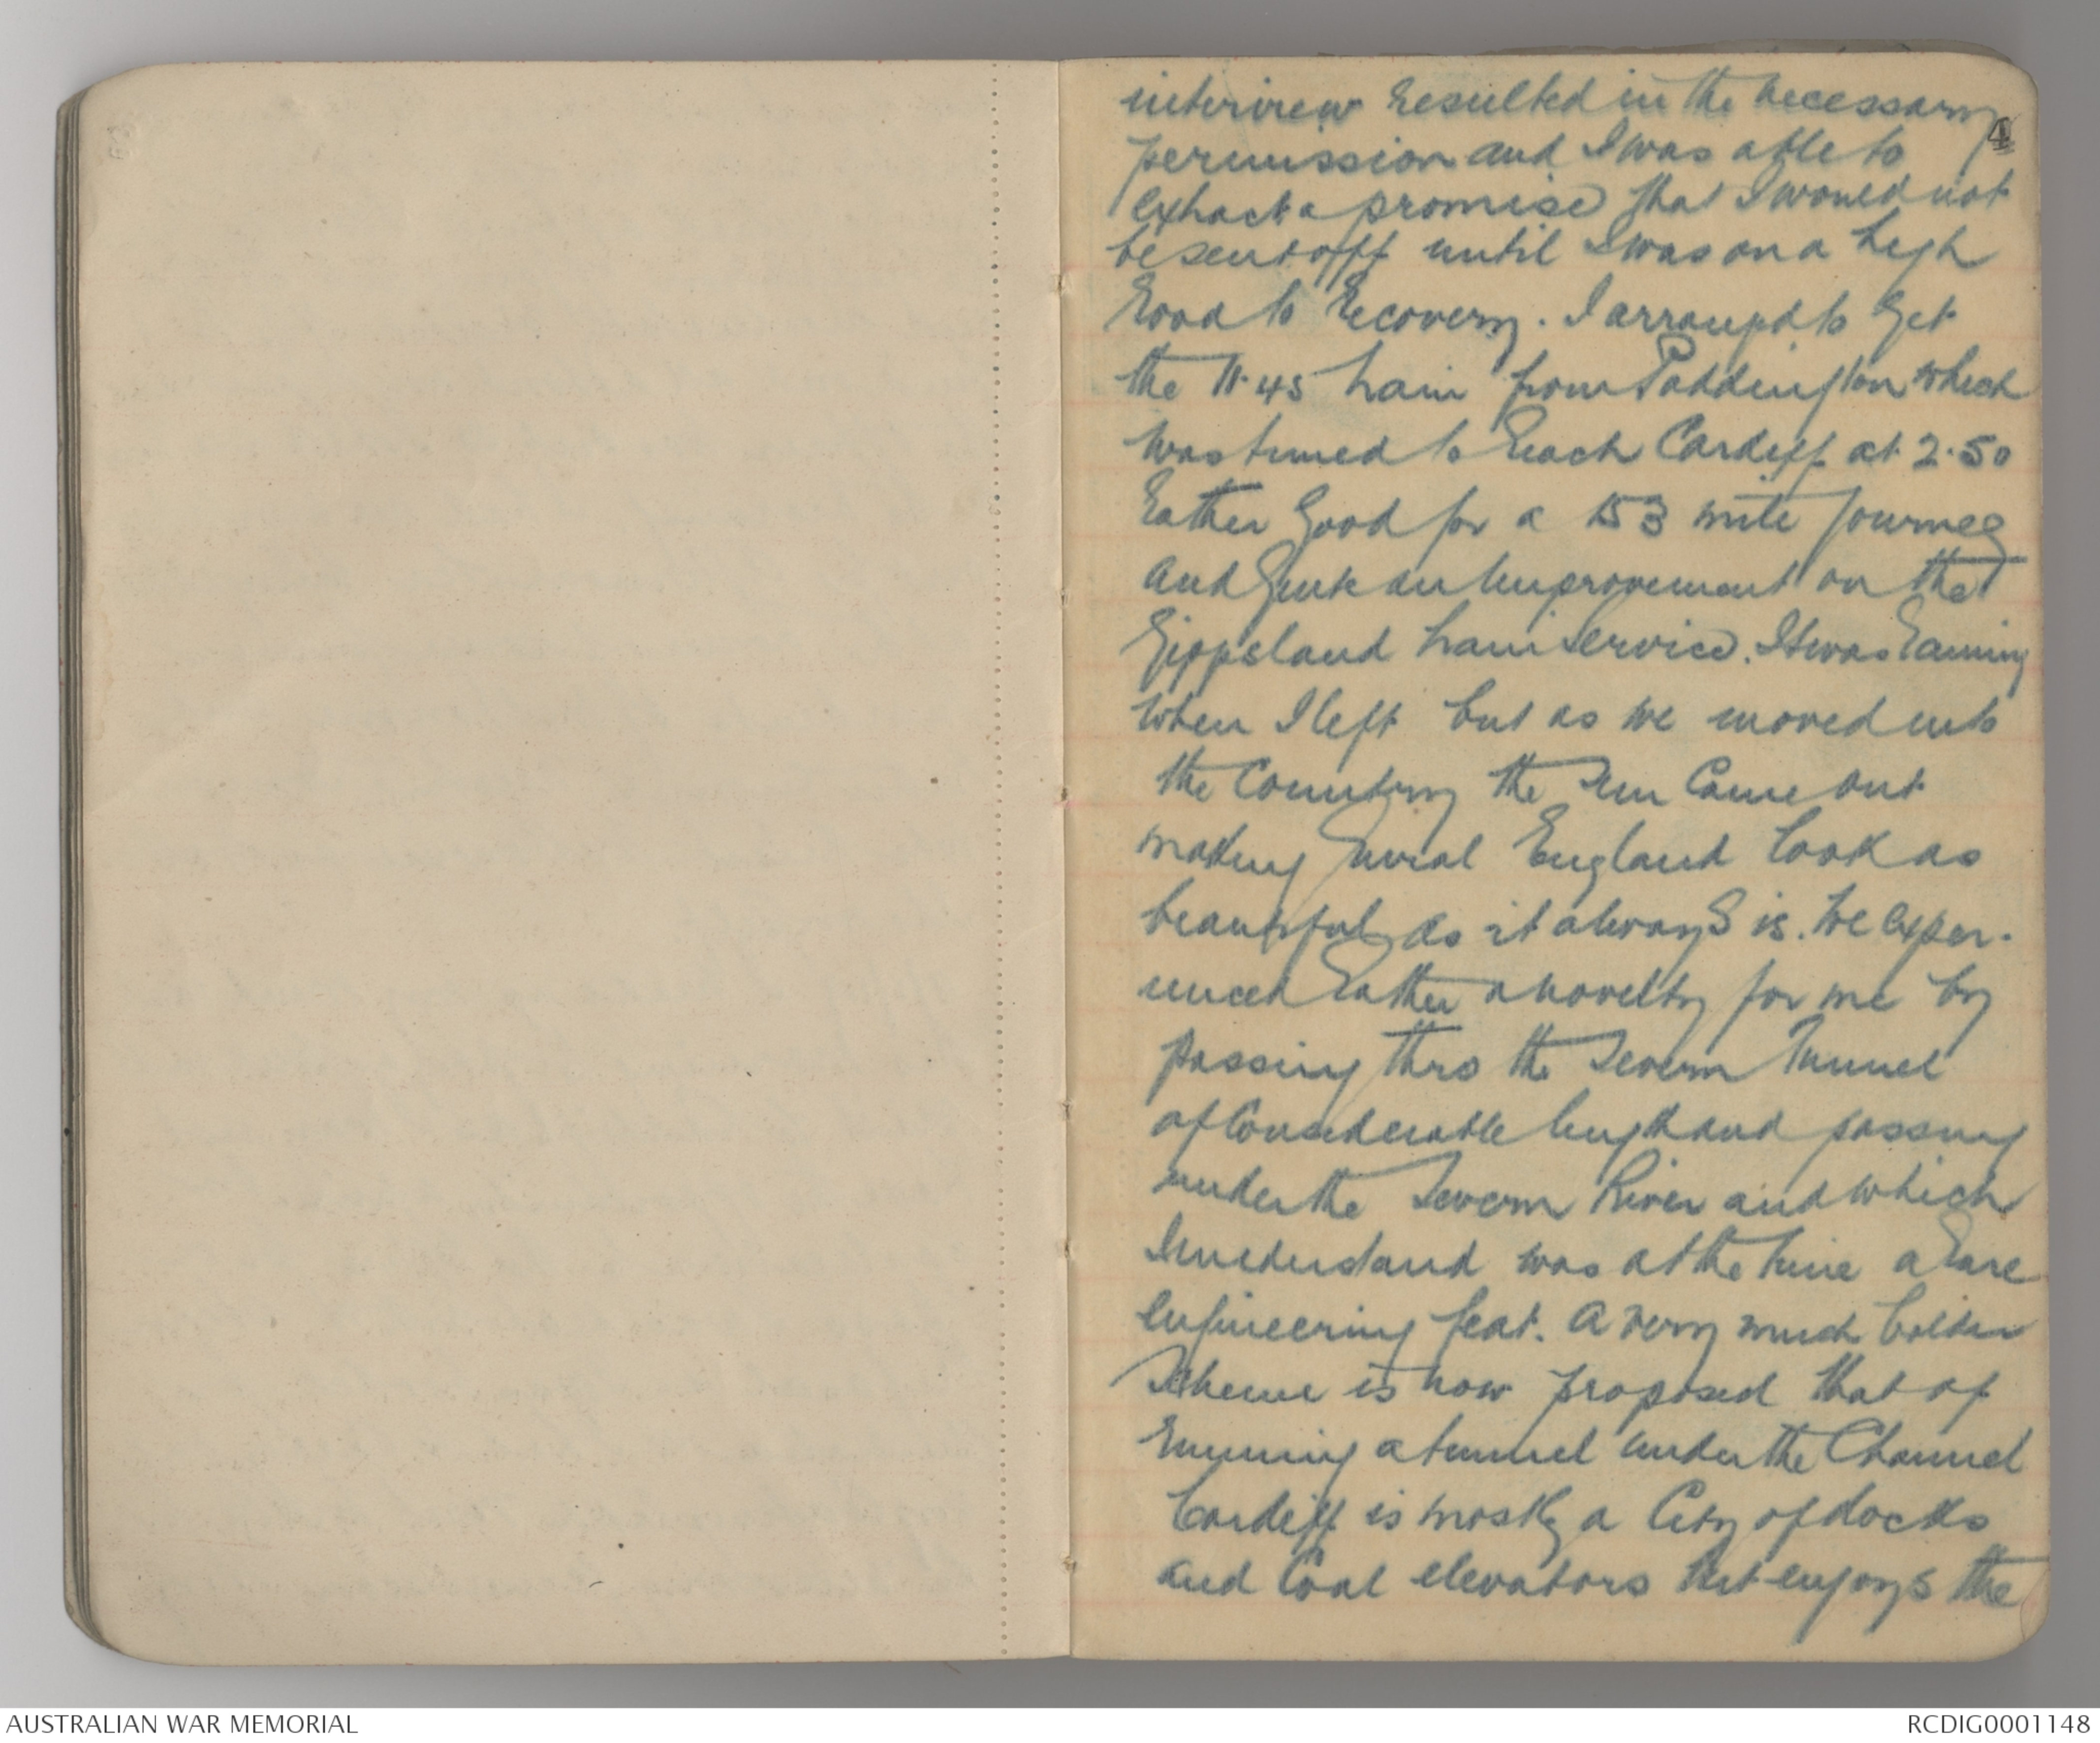 interview resulted in the necessary
4
permission and I was able to
extract a promise that I would not
be sent off until I was on a high
road to recovery. I arranged to get
the 11.45 train from Paddington which
was timed to reach Cardiff at 2.50
rather good for a 153 mile journey
and quite an improvement on the
Gippsland train service. It was raining
when I left but as we moved into
the country the sun came out
making rural England look as
beautiful as it always is. We exper-
ienced rather a novelty for me by
passing thro the Severn Tunnel
of considerable length and passing
under the Severn River and which
I understand was at the time a rare
engineering feat. A very much bolder
scheme is now proposed that of
running a tunnel under the Channel
Cardiff is mostly a City of docks
and Coal elevators but enjoys the
AUSTRALIAN WAR MEMORIAL
RCDIG0001148